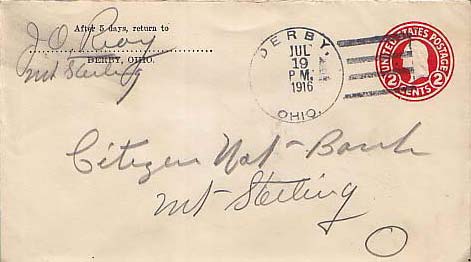 After 5 days, return to
J. O. Ray
DERBY, OHIO.
Mt Sterling
DERBY,
JUL
19
P M.
1916
OHIO.
UNITED STATES POSTAGE
2 CENTS 2
Citizen Nat- Bank
Mt Sterling
O